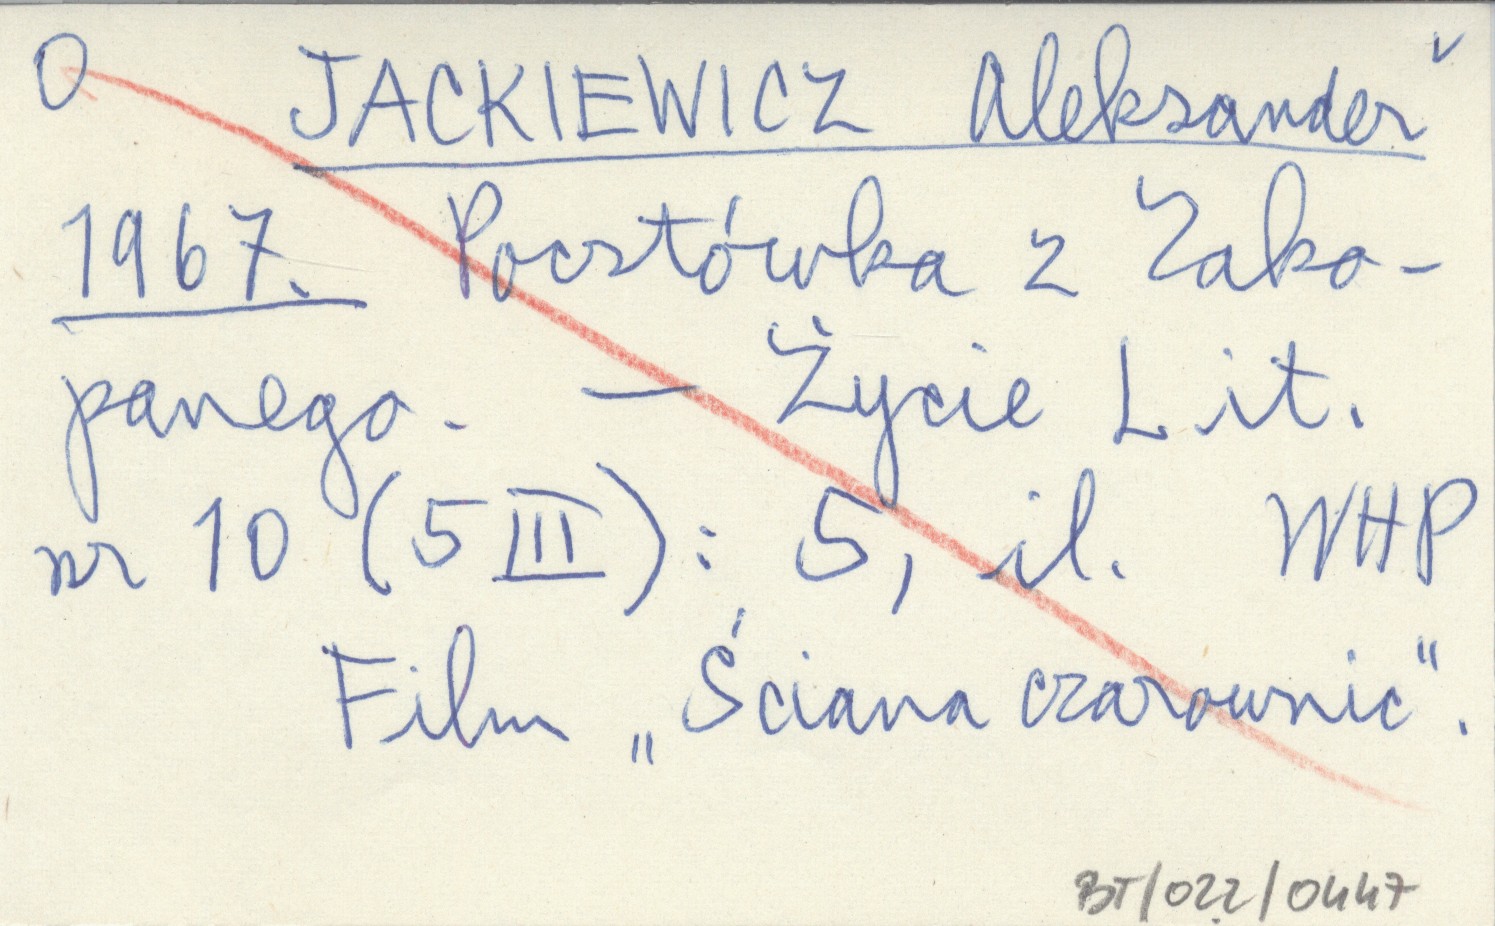 O JACKIEWICZ Aleksander ✓
1967. Pocztówka z Zako-
panego. — Życie Lit.
nr 10 (5 III): 5, il. WHP
Film „Ściana czarownic".
BT/022/0447